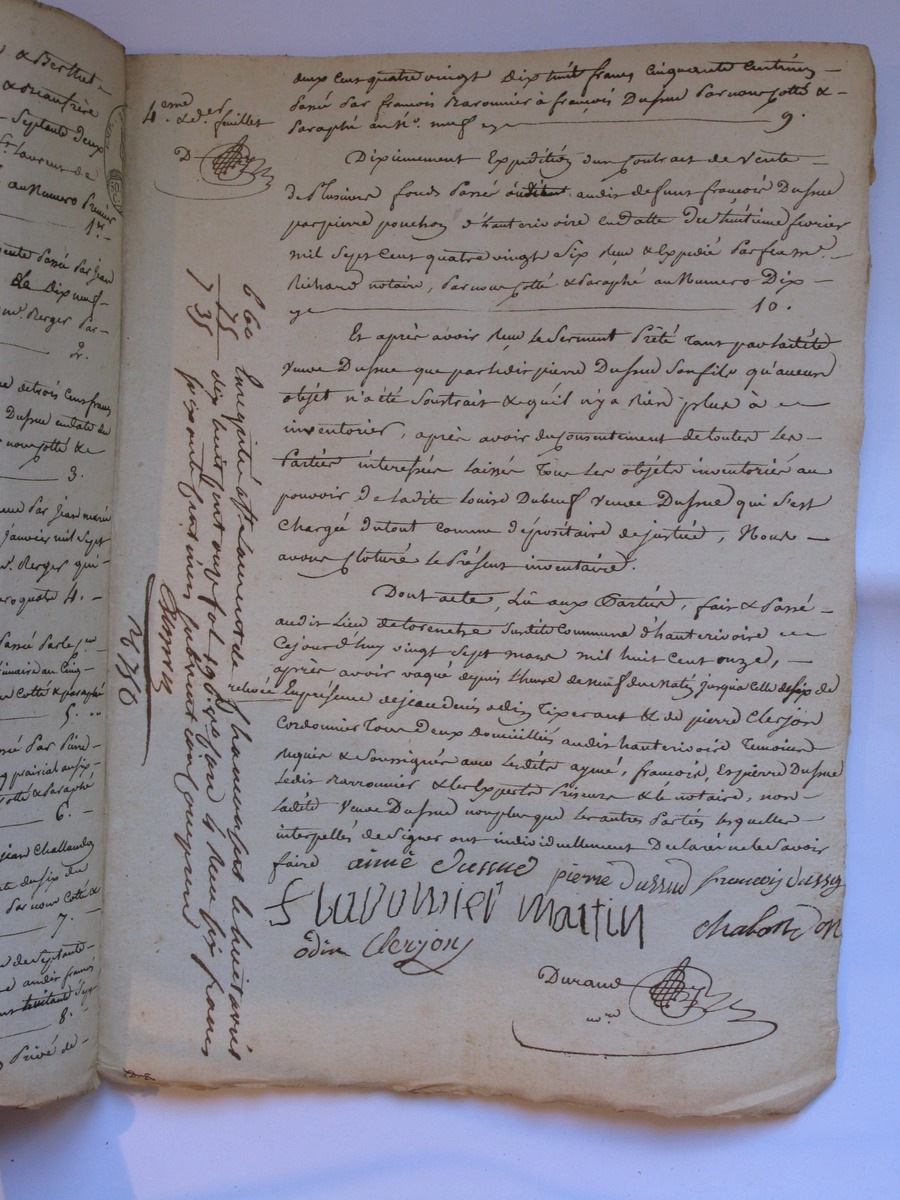 & Berthet
Septante deux
au Numero Premier
1er. -
Passé Par jean
Dix neuf
me. Berger Par-
2.
de trois Cens francs
Dussuc en date du
nous Cotté &
3.
Par Jean marie
janvier mil Sept
me. Berger qui-
ro quatre 4. -
Passé Par le
au Cinq
Cotté & paraphé
5.
Par Pierre
prairial an six-
Cotté & Paraphé
6. -
jean Challandon
du six du
Par nous Cotté &
7.
de Septante-
audit françois
8.
Privé de -
4.eme & der. feuillet
D
deux Cens quatre vingt Dix huit francs Cinquante Centimes -
Passé Par françois Ravonnier à françois Dussuc Par nous Cotté & -
Paraphé au No. neuf 9.
Dixiemement Expedition d'un Contrait de Vente -
de Plusieurs fonds Passé audit defunt françois Dussuc
par pierre pouchon d'hauterivoire en datte du huitieme fevrier
mil Sept Cent quatre vingt Six Reçu & Expedié Par feu me. -
Richard notaire, Par nous Cotté & Paraphé au Numero Dix -
10.
Et après avoir Reçu le Serment Prêté Tant par ladite
Veuve Dussuc que par ledit pierre Dussuc Son fils qu'aucun
objet n'a été Soustrait & qu'il n'y a Rien plus à
inventorier, après avoir du Consentement de toutes les -
Parties interessées Laissé Tous les objets inventoriés au
pouvoir de Ladite Louise Dubeuf Veuve Dussuc qui s'est
Chargée du tout Comme Dépositaire de justice, Nous -
avons Cloturé le Présent inventaire.
Dont acte, Lû aux Parties, fait & Passé -
audit Lieu de Susdite Commune d'hauterivoire
Cejourd'huy vingt Sept mars mil huit Cent onze, -
après avoir vaqué depuis L'heure de neuf du Matin jusqu'a Celle de six de
relevée En présence de jean denis odin Tixerant & de pierre Clerjon
Cordonnier Tous Deux domiciliés audit hauterivoire Temoins
Requis & Soussignés avec Lesdits aymé, françois, Et pierre Dussuc
Ledit Ravonnier & les Experts Priseurs & le notaire, non
Ladite Veuve Dussuc non plus que les autres Parties lesquelles -
interpellés de Signer ont individuellement Declaré ne le Savoir
faire aimé dussuc pierre dussud francois dussuc
f Ravonnier Martin Chalandon
odin Clerjon
Durand
nre
6 60
75
7 35
Enregistré à St Laurent de Chamousset le huit avril
dix huit cent onze fol 196 Reçu six francs
soixante centimes
No. 750